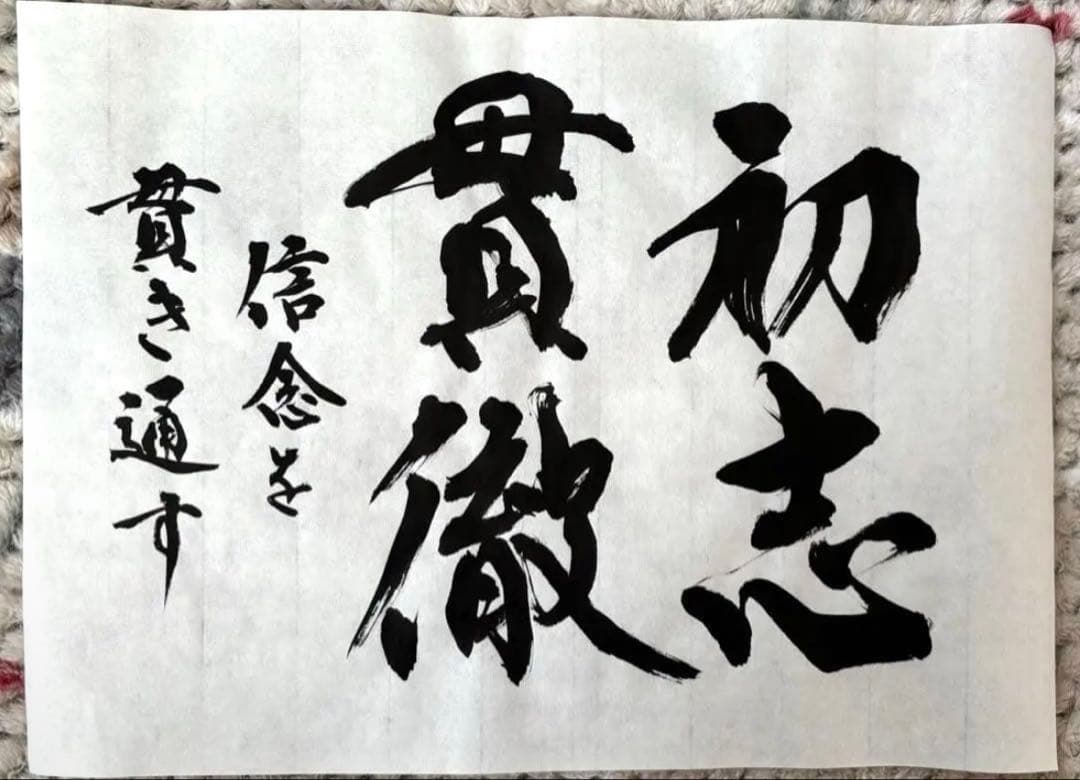 初志
貫徹
信念を
貫き通す